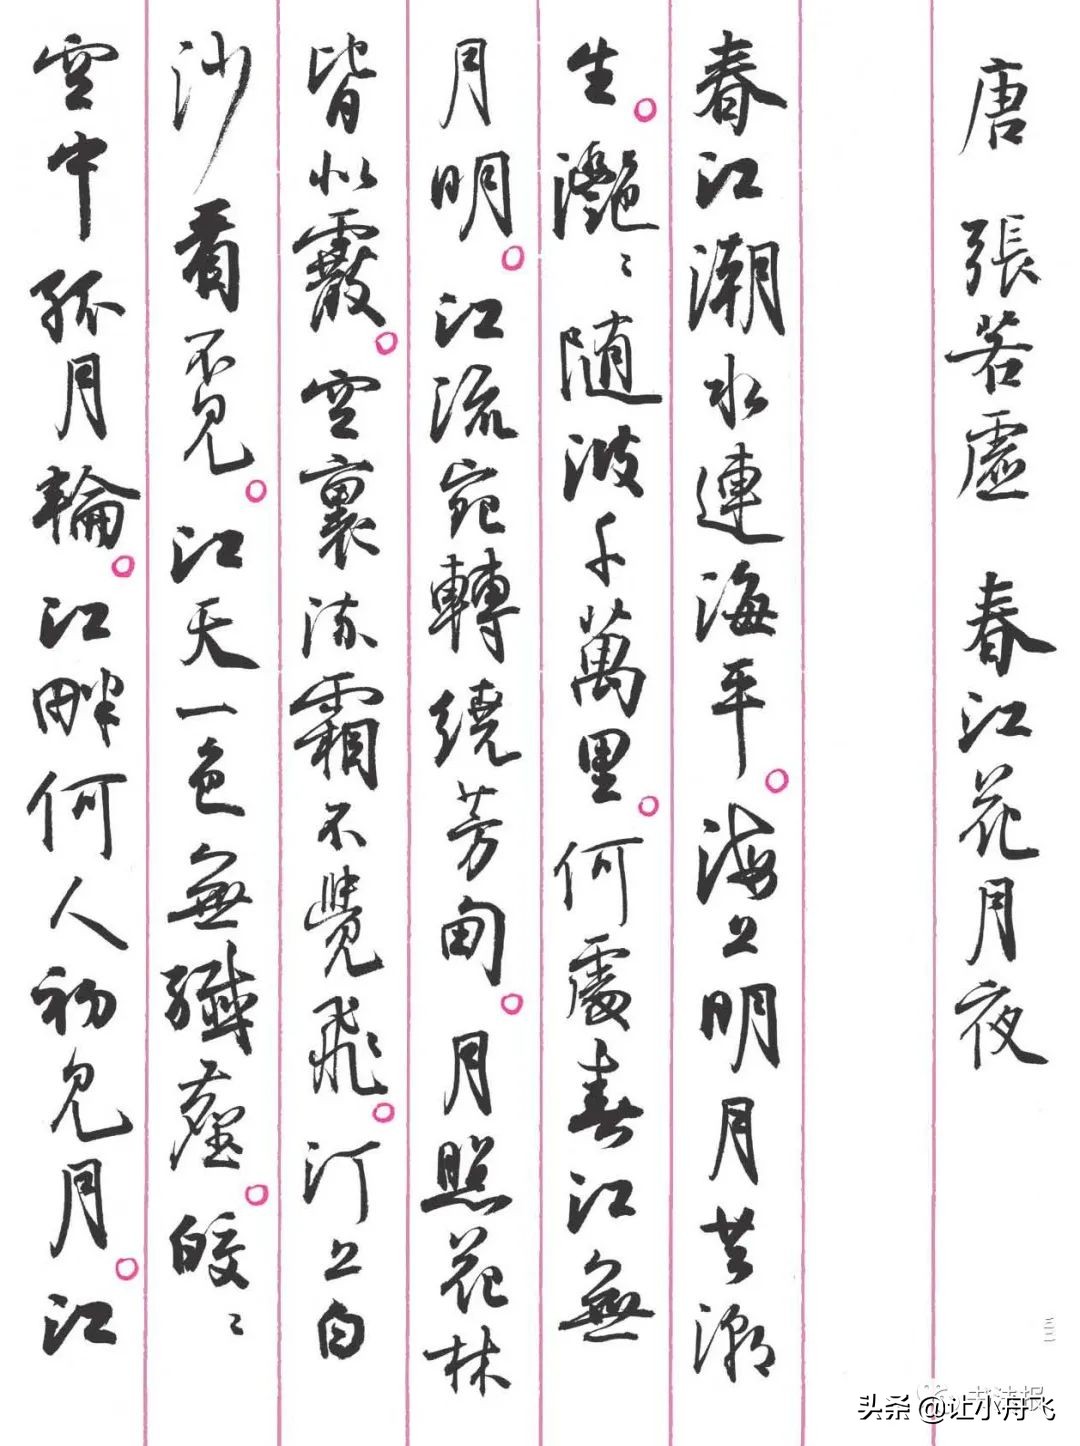 唐 張若虛 春江花月夜
春江潮水連海平。海上明月共潮
生。灔〻随波千萬里。何處春江無
月明。江流宛轉繞芳甸。月照花林
皆似霰。空裏流霜不覺飛。汀上白
沙看不見。江天一色無纖塵。皎〻
空中孤月輪。江畔何人初見月。江
三二
书法报
头条 @让小舟飞